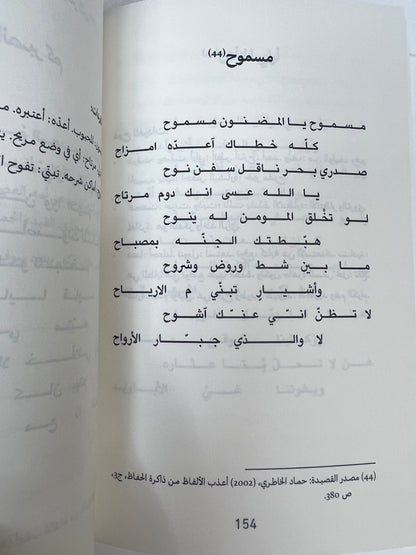 مسموح (44)
مسموح يا المضنون مسموح
كلّه خطاك آعدّه امزاح
صدري بحر ناقل سفن نوح
يا الله عسى انك دوم مرتاح
لو تخْلق المومن له ينوح
هبّطتك الجنّه بمصباح
ما بين شط وروض وشروح
وأشيارٍ تبنّي م الارياح
لا تظنّ انّي عنّك آشوح
لا والذي جبّار الأرواح
(44) مصدر القصيدة: حماد الخاطري، (2002) أعذب الألفاظ من ذاكرة الحفاظ، ج3،
ص 380.
154
المحبوب. أعدّه: أعتبره. م
مرتاح: أي في وضع مريح. ي
شرحه. تبنّي: تفوح ا